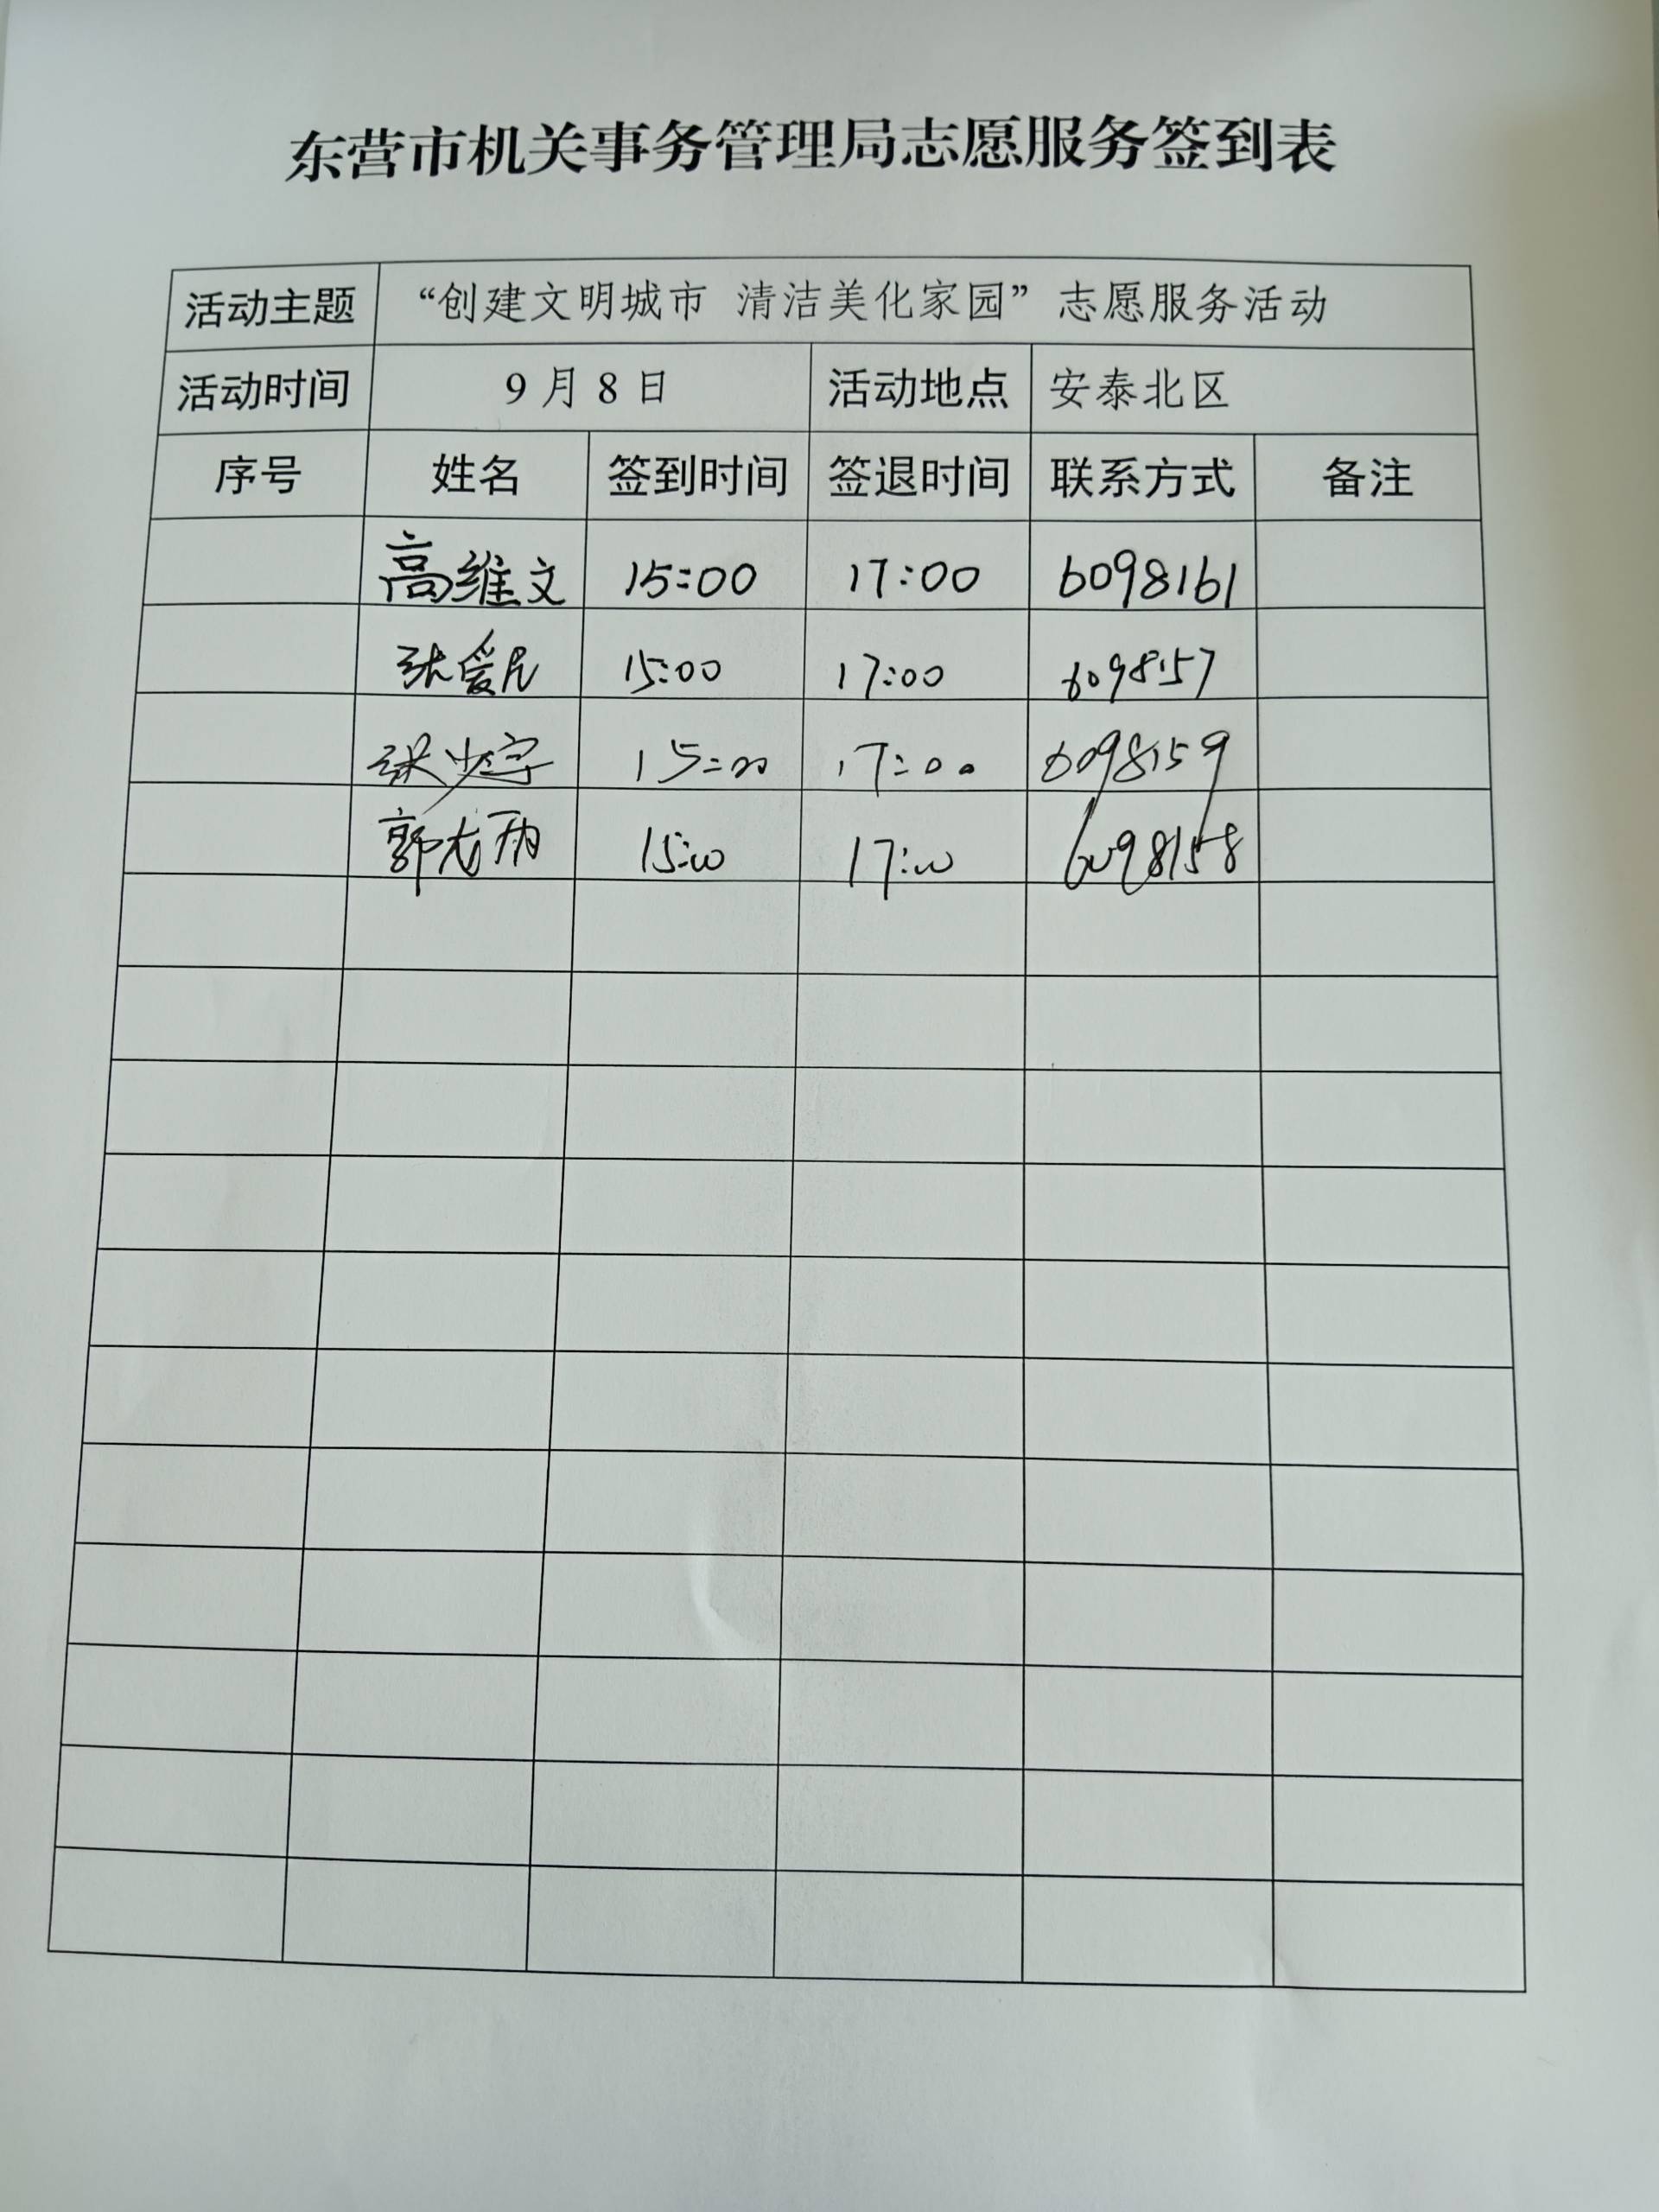 东营市机关事务管理局志愿服务签到表
活动主题 “创建文明城市 清洁美化家园”志愿服务活动
活动时间 9月8日 活动地点 安泰北区
序号 姓名 签到时间 签退时间 联系方式 备注
高维文 15:00 17:00 6098161
张爱民 15:00 17:00 6098157
张少宇 15:00 17:00 6098159
郭龙雨 15:00 17:00 6098158